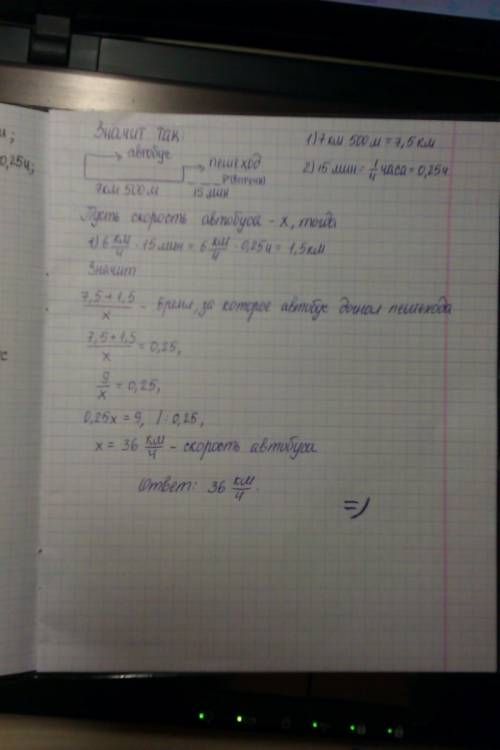 Значит так:
автобус
пешеход
Р(встречи)
7 км 500 м
15 мин
1) 7 км 500 м = 7,5 км
2) 15 мин = 1/4 часа = 0,25 ч
Пусть скорость автобуса - x, тогда
1) 6 км/ч · 15 мин = 6 км/ч · 0,25 ч = 1,5 км
Значит
(7,5+1,5)/x - время, за которое автобус догнал пешехода
(7,5+1,5)/x = 0,25,
9/x = 0,25,
0,25x = 9, | : 0,25,
x = 36 км/ч - скорость автобуса
Ответ: 36 км/ч.
=)
0,25ч;